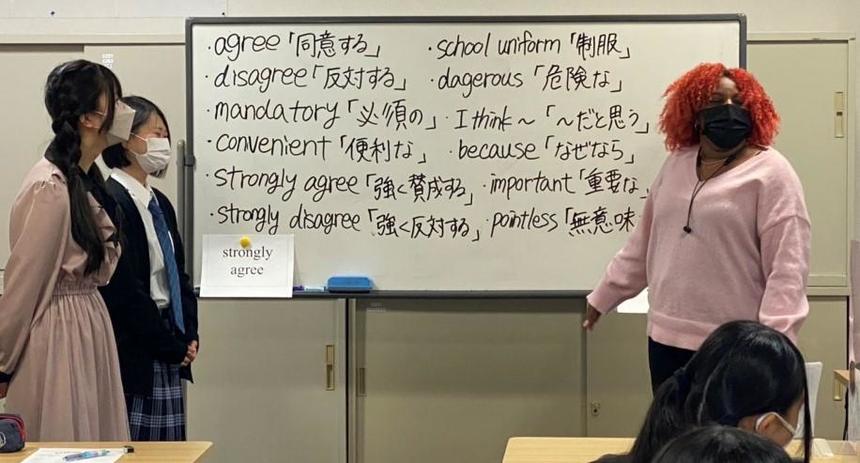 ・agree「同意する」
・school uniform「制服」
・disagree「反対する」
・dagerous「危険な」
・mandatory「必須の」
・I think～「～だと思う」
・convenient「便利な」
・because「なぜなら」
・strongly agree「強く賛成する」
・important「重要な」
・strongly disagree「強く反対する」
・pointless「無意味
strongly
agree